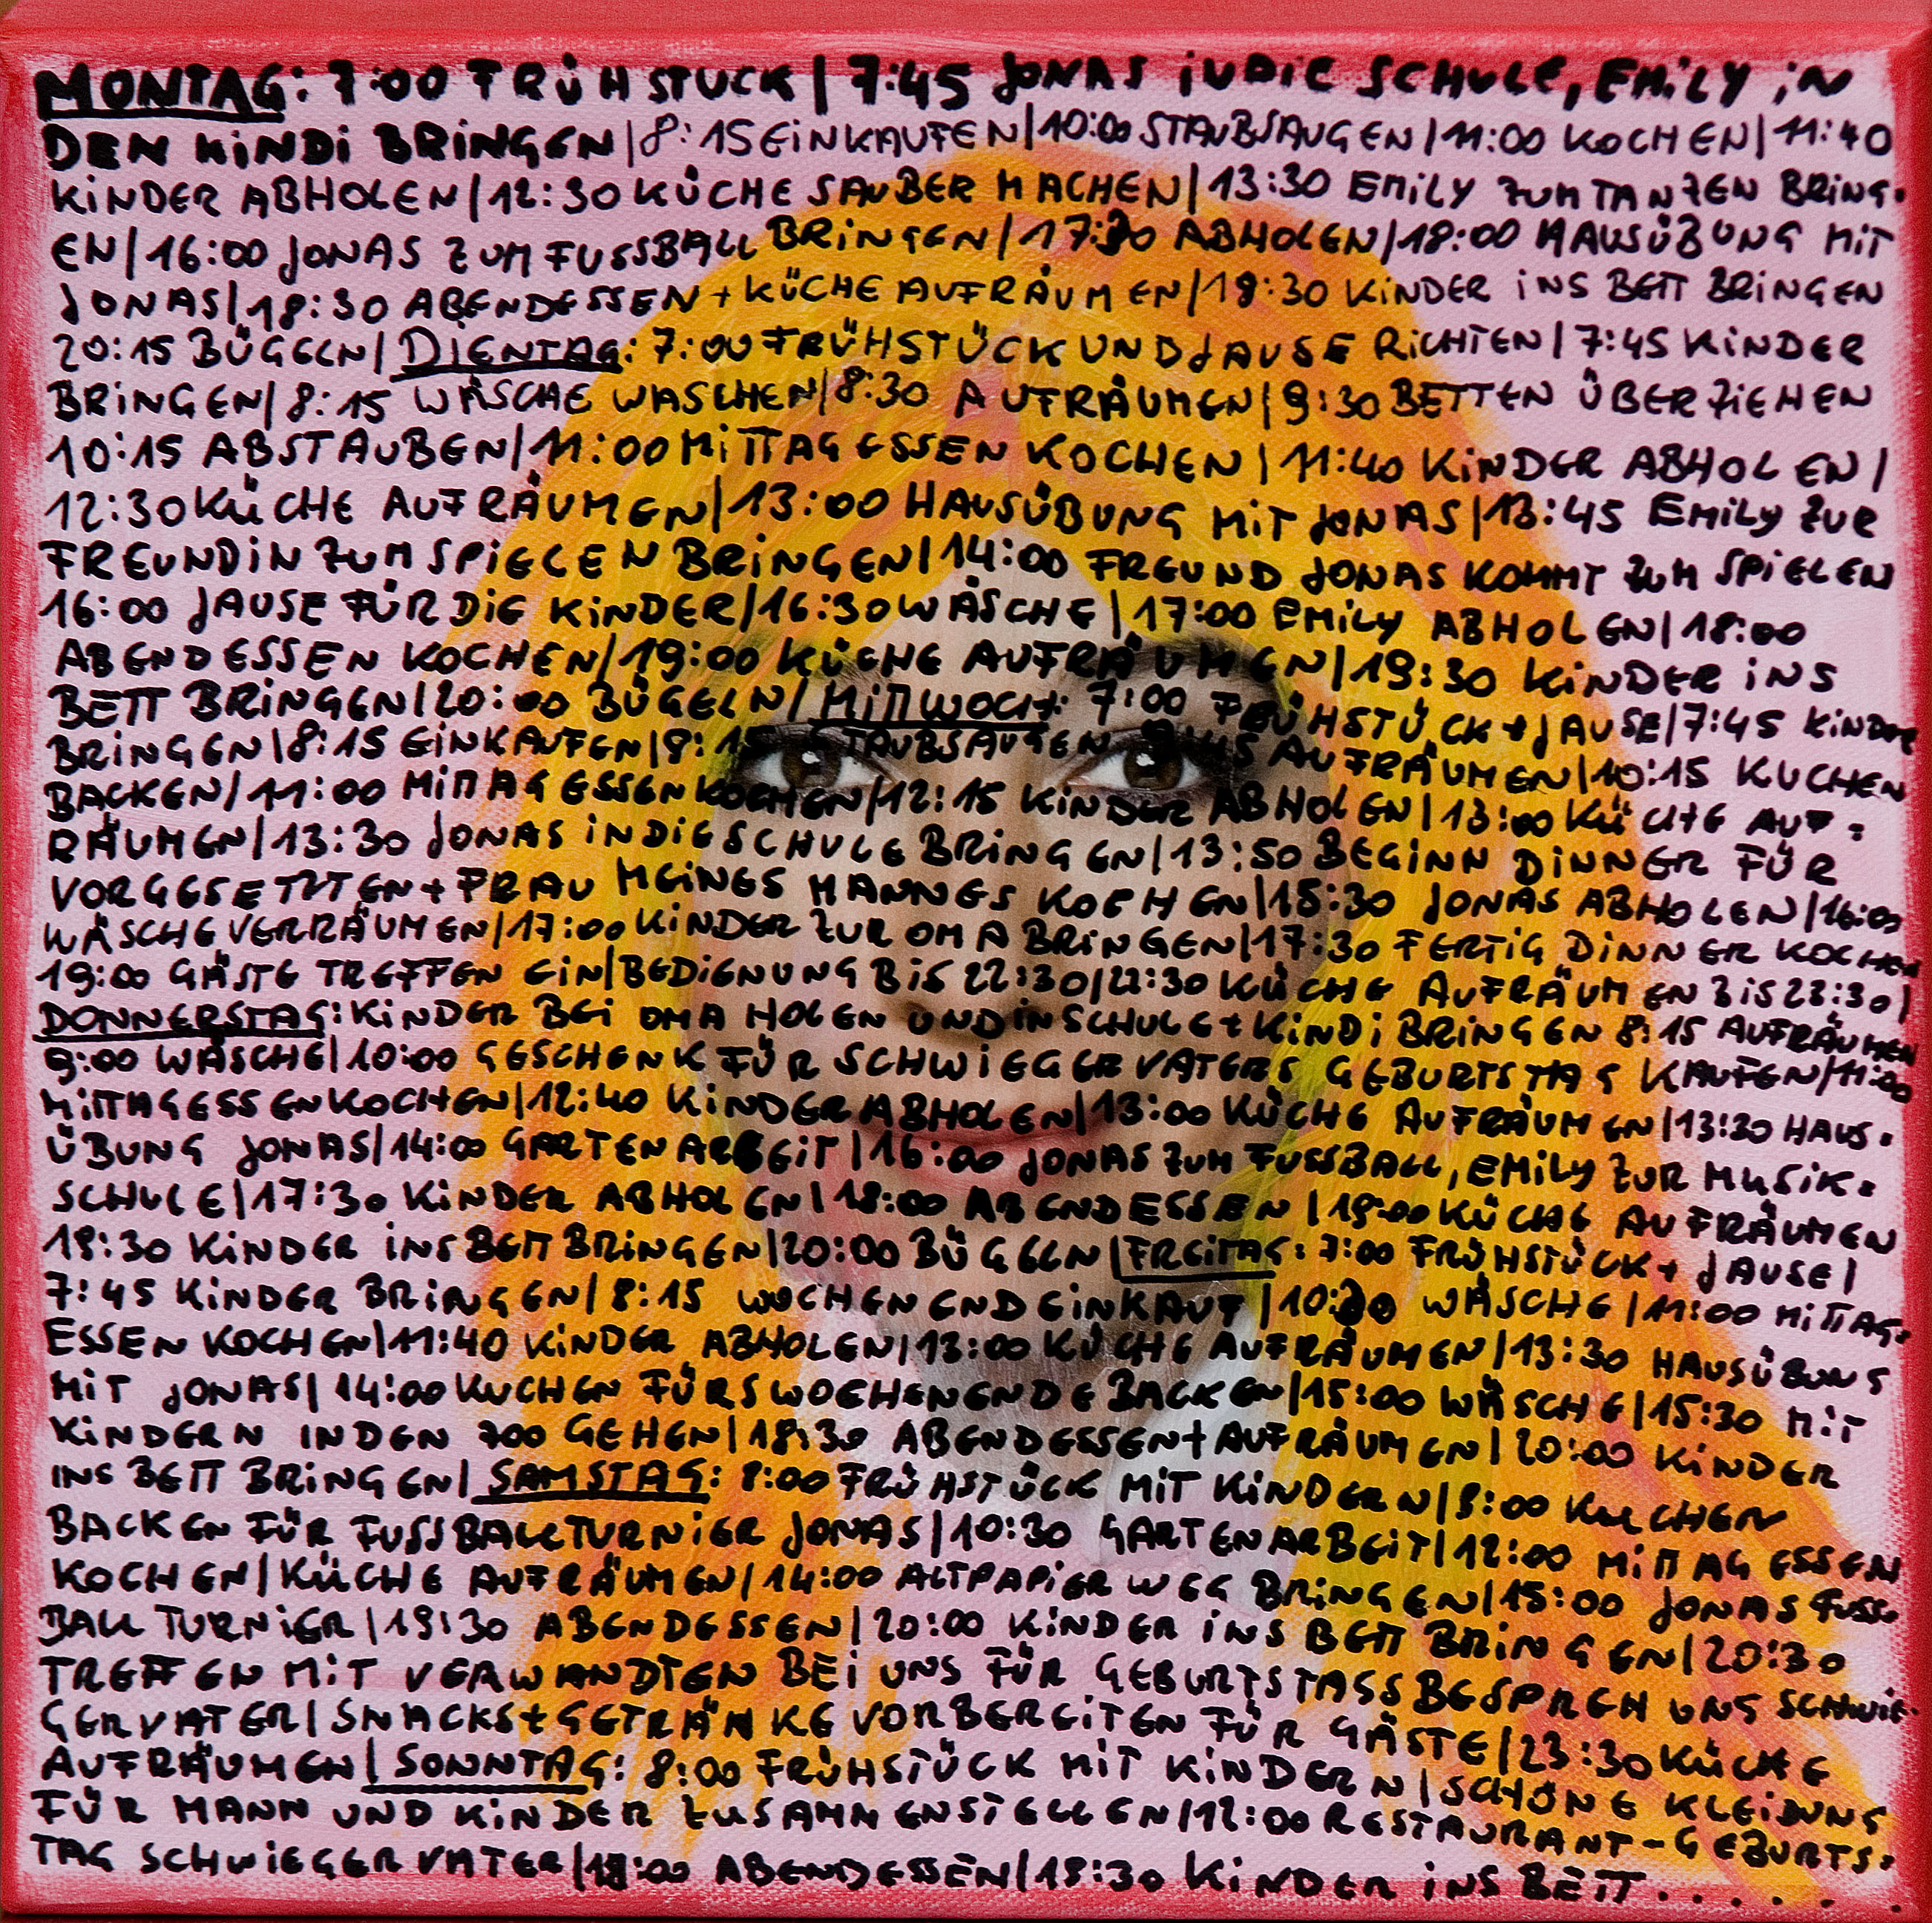 MONTAG: 7:00 FRÜHSTUCK | 7:45 JONAS IN DIE SCHULE, EMILY IN
DEN KINDI BRINGEN | 8:15 EINKAUFEN | 10:00 STAUBSAUGEN | 11:00 KOCHEN | 11:40
KINDER ABHOLEN | 12:30 KÜCHE SAUBER MACHEN | 13:30 EMILY ZUM TANZEN BRING-
EN | 16:00 JONAS ZUM FUSSBALL BRINGEN | 17:30 ABHOLEN | 18:00 HAUSÜBUNG MIT
JONAS | 18:30 ABENDESSEN + KÜCHE AUFRÄUMEN | 19:30 KINDER INS BETT BRINGEN
20:15 BÜGELN | DIENTAG: 7:00 FRÜHSTÜCK UND JAUSE RICHTEN | 7:45 KINDER
BRINGEN | 8:15 WÄSCHE WASCHEN | 8:30 AUFRÄUMEN | 9:30 BETTEN ÜBERZIEHEN
10:15 ABSTAUBEN | 11:00 MITTAGESSEN KOCHEN | 11:40 KINDER ABHOLEN |
12:30 KÜCHE AUFRÄUMEN | 13:00 HAUSÜBUNG MIT JONAS | 13:45 EMILY ZUR
FREUNDIN ZUM SPIELEN BRINGEN | 14:00 FREUND JONAS KOMMT ZUM SPIELEN
16:00 JAUSE FÜR DIE KINDER | 16:30 WÄSCHE | 17:00 EMILY ABHOLEN | 18:00
ABENDESSEN KOCHEN | 19:00 KÜCHE AUFRÄUMEN | 19:30 KINDER INS
BETT BRINGEN | 20:00 BÜGELN | MITTWOCH: 7:00 FRÜHSTÜCK + JAUSE | 7:45 KINDER
BRINGEN | 8:15 EINKAUFEN | 9:15 STAUBSAUGEN 9:45 AUFRÄUMEN | 10:15 KUCHEN
BACKEN | 11:00 MITTAGESSEN KOCHEN | 12:15 KINDER ABHOLEN | 13:00 KÜCHE AUF-
RÄUMEN | 13:30 JONAS IN DIE SCHULE BRINGEN | 13:50 BEGINN DINNER FÜR
VORGESETZTEN + FRAU MEINES MANNES KOCHEN | 15:30 JONAS ABHOLEN | 16:00
WÄSCHE VERRÄUMEN | 17:00 KINDER ZUR OMA BRINGEN | 17:30 FERTIG DINNER KOCHEN
19:00 GÄSTE TREFFEN EIN | BEDIENUNG BIS 22:30 | 22:30 KÜCHE AUFRÄUMEN BIS 23:30 |
DONNERSTAG: KINDER BEI OMA HOLEN UND IN SCHULE + KINDI BRINGEN 8:15 AUFRÄUMEN
9:00 WÄSCHE | 10:00 GESCHENK FÜR SCHWIEGERVATERS GEBURTSTAG KAUFEN | 11:00
MITTAGESSEN KOCHEN | 12:40 KINDER ABHOLEN | 13:00 KÜCHE AUFRÄUMEN | 13:30 HAUS-
ÜBUNG JONAS | 14:00 GARTENARBEIT | 16:00 JONAS ZUM FUSSBALL, EMILY ZUR MUSIK-
SCHULE | 17:30 KINDER ABHOLEN | 18:00 ABENDESSEN | 19:00 KÜCHE AUFRÄUMEN
19:30 KINDER INS BETT BRINGEN | 20:00 BÜGELN | FREITAG: 7:00 FRÜHSTÜCK + JAUSE |
7:45 KINDER BRINGEN | 8:15 WOCHENENDEINKAUF | 10:30 WÄSCHE | 11:00 MITTAG-
ESSEN KOCHEN | 11:40 KINDER ABHOLEN | 13:00 KÜCHE AUFRÄUMEN | 13:30 HAUSÜBUNG
MIT JONAS | 14:00 KUCHEN FÜRS WOCHENENDE BACKEN | 15:00 WÄSCHE | 15:30 MIT
KINDERN IN DEN ZOO GEHEN | 18:30 ABENDESSEN + AUFRÄUMEN | 20:00 KINDER
INS BETT BRINGEN | SAMSTAG: 8:00 FRÜHSTÜCK MIT KINDERN | 9:00 KUCHEN
BACKEN FÜR FUSSBALLTURNIER JONAS | 10:30 GARTENARBEIT | 12:00 MITTAGESSEN
KOCHEN | KÜCHE AUFRÄUMEN | 14:00 ALTPAPIER WEG BRINGEN | 15:00 JONAS FUSS-
BALL TURNIER | 19:30 ABENDESSEN | 20:00 KINDER INS BETT BRINGEN | 20:30
TREFFEN MIT VERWANDTEN BEI UNS FÜR GEBURTSTAGSBESPREHUNG SCHWIE-
GERVATER | SNACKS + GETRÄNKE VORBEREITEN FÜR GÄSTE | 23:30 KÜCHE
AUFRÄUMEN | SONNTAG: 8:00 FRÜHSTÜCK MIT KINDERN | SCHÖNE KLEIDUNG
FÜR MANN UND KINDER ZUSAMMENSTELLEN | 12:00 RESTAURANT - GEBURTS-
TAG SCHWIEGERVATER | 18:00 ABENDESSEN | 19:30 KINDER INS BETT......